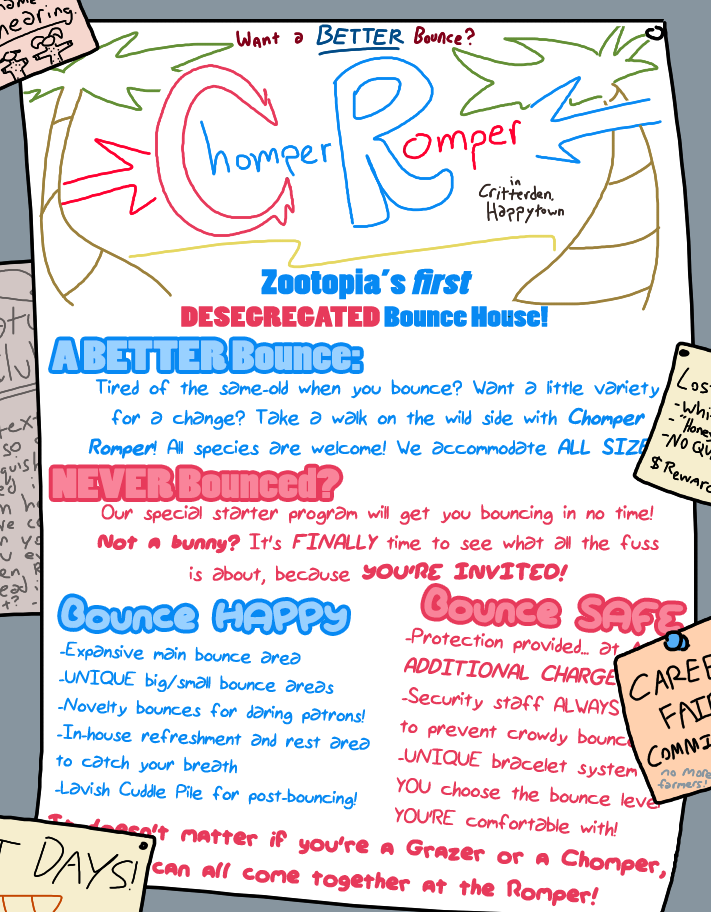 Want a BETTER Bounce?
Chomper Romper
in
Critterden,
Happytown
Zootopia's first
DESEGREGATED Bounce House!
A BETTER Bounce:
Tired of the same-old when you bounce? Want a little variety
for a change? Take a walk on the wild side with Chomper
Romper! All species are welcome! We accommodate ALL
NEVER Bounced?
Our special starter program will get you bouncing in no time!
Not a bunny? It's FINALLY time to see what all the fuss
is about, because YOU'RE INVITED!
Bounce HAPPY
-Expansive main bounce area
-UNIQUE big/small bounce areas
-Novelty bounces for daring patrons!
-In-house refreshment and rest area
to catch your breath
-Lavish Cuddle Pile for post-bouncing!
Bounce SAFE
-Protection provided... at
ADDITIONAL
-Security staff ALWAYS
to prevent crowdy
-UNIQUE bracelet system
YOU choose the bounce level
YOU'RE comfortable with!
doesn't matter if you're a Grazer or a Chomper,
can all come together at the Romper!
$ Reward
-NO
FAIR
no more
farmers!
DAYS!